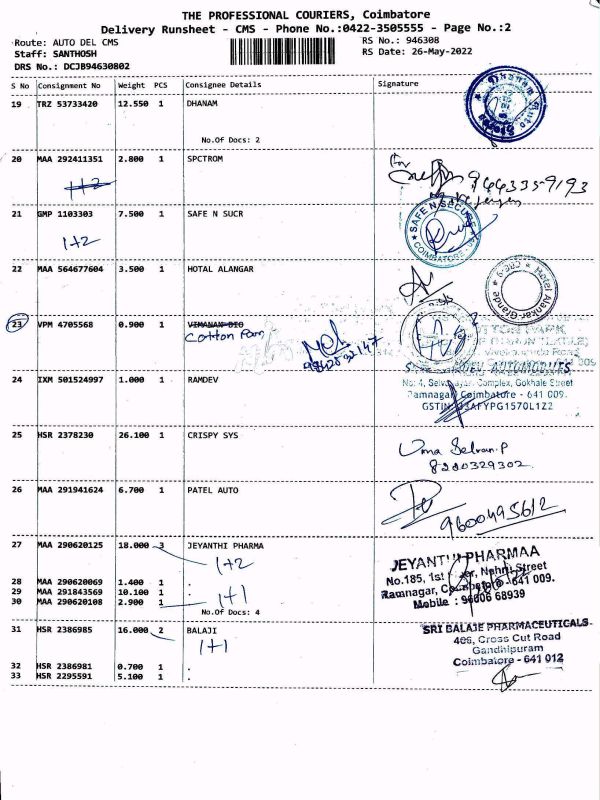 THE PROFESSIONAL COURIERS, Coimbatore
Delivery Runsheet - CMS - Phone No.:0422-3505555 - Page No.:2
Route: AUTO DEL CMS
RS No.: 946308
Staff: SANTHOSH
RS Date: 26-May-2022
DRS No.: DCJB94630802
S No Consignment No Weight PCS Consignee Details Signature
19 TRZ 53733420 12.550 1 DHANAM
No.Of Docs: 2
20 MAA 292411351 2.800 1 SPCTROM
for
1+2
21 GMP 1103303 7.500 1 SAFE N SUCR
SAFE N SECURE
COIMBATORE
1+2
22 MAA 564677604 3.500 1 HOTAL ALANGAR
Hotel Alankar Grande
23 VPM 4705568 0.900 1 VIMANAN BIO
Cotton Parn
AUTOMOBILES
No: 4, Selvanayar Complex, Gokhale Street
24 IXM 501524997 1.000 1 RAMDEV
Ramnagar, Coimbatore - 641 009.
GSTIN: 33AFYPG1570L1Z2
25 HSR 2378230 26.100 1 CRISPY SYS
Uma Selvan.P
8220329302
26 MAA 291941624 6.700 1 PATEL AUTO
9600495612
27 MAA 290620125 18.000 3 JEYANTHI PHARMA
1+2
JEYANTHI PHARMAA
No.185, 1st Floor, Nehru Street
28 MAA 290620069 1.400 1 :
Ramnagar, Coimbatore - 641 009.
29 MAA 291843569 10.100 1 :
1+1
Mobile : 96006 68939
30 MAA 290620108 2.900 1 :
No.Of Docs: 4
31 HSR 2386985 16.000 2 BALAJI
1+1
SRI BALAJE PHARMACEUTICALS
406, Cross Cut Road
Gandhipuram
Coimbatore - 641 012
32 HSR 2386981 0.700 1 :
33 HSR 2295591 5.100 1 :